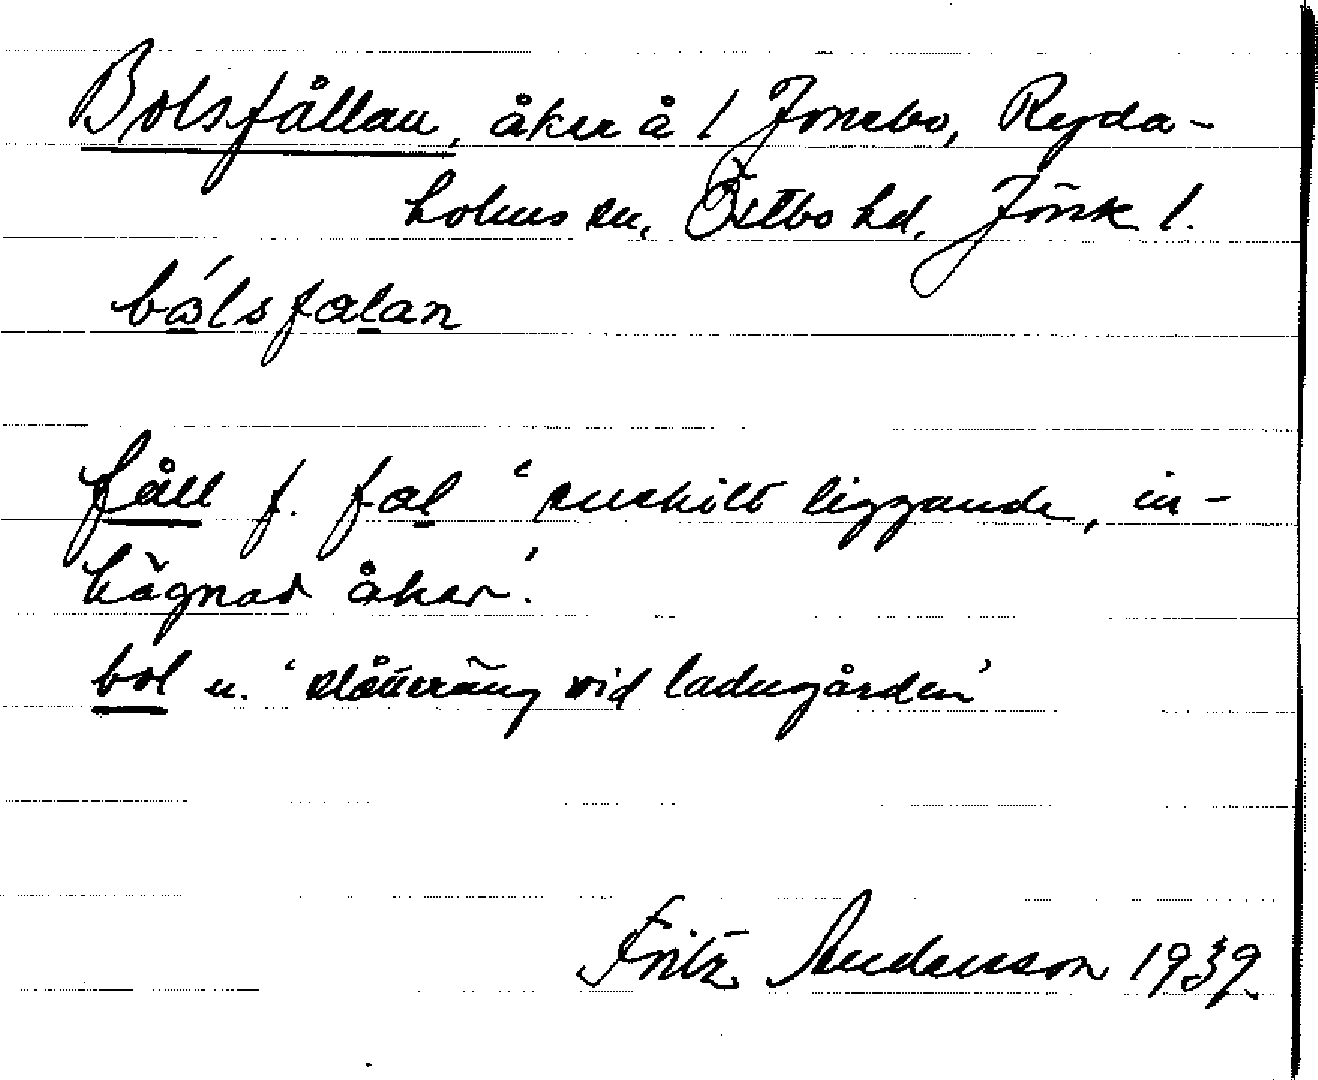 Bolsfållan, åker å 1 Jonsbo, Ryda-
holms sn, Östbo hd, Jönk l.
bólsfalan
fåll f. fal 'enskilt liggande, in-
hägnad åker'.
bol n. 'slåtteräng vid ladugården'
Fritz Andersson 1939.